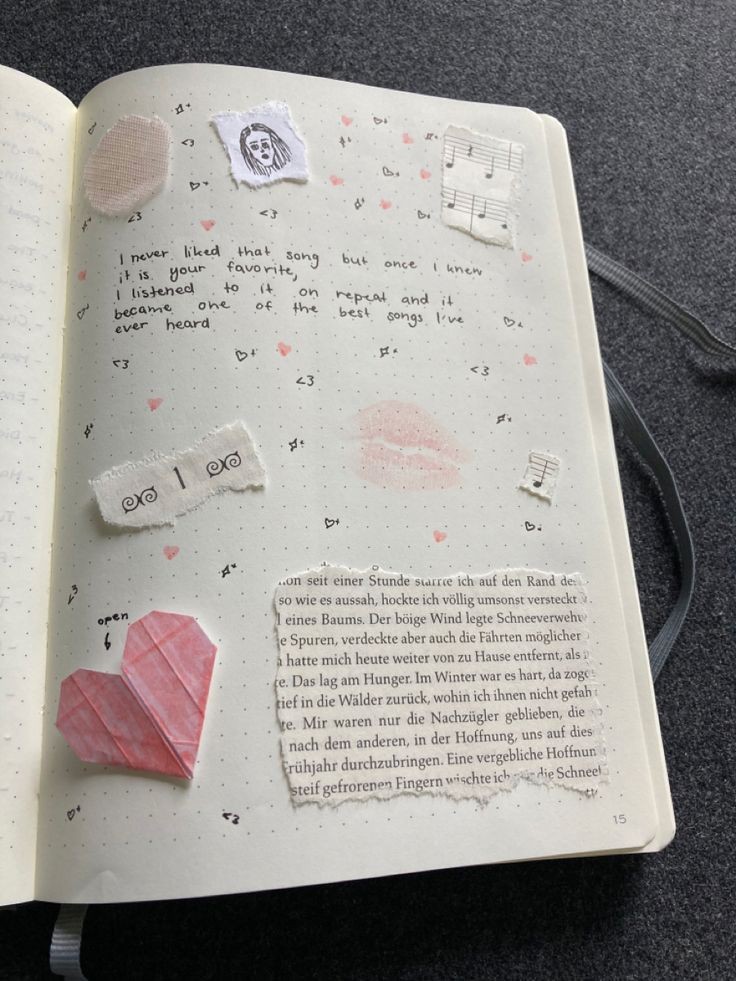 I never liked that song but once I knew
it is your favorite,
I listened to it on repeat and it
became one of the best songs I've
ever heard
<3
<3
<3
<3
<3
<3
1
open
<3
seit einer Stunde starrte ich auf den Rand
so wie es aussah, hockte ich völlig umsonst versteckt
eines Baums. Der böige Wind legte Schneeverwehu
e Spuren, verdeckte aber auch die Fährten möglicher
hatte mich heute weiter von zu Hause entfernt, als
e. Das lag am Hunger. Im Winter war es hart, da zoge
tief in die Wälder zurück, wohin ich ihnen nicht gefah
te. Mir waren nur die Nachzügler geblieben, die
nach dem anderen, in der Hoffnung, uns auf dies
Frühjahr durchzubringen. Eine vergebliche Hoffnun
steif gefrorenen Fingern wischte ich die Schneef
<3
15